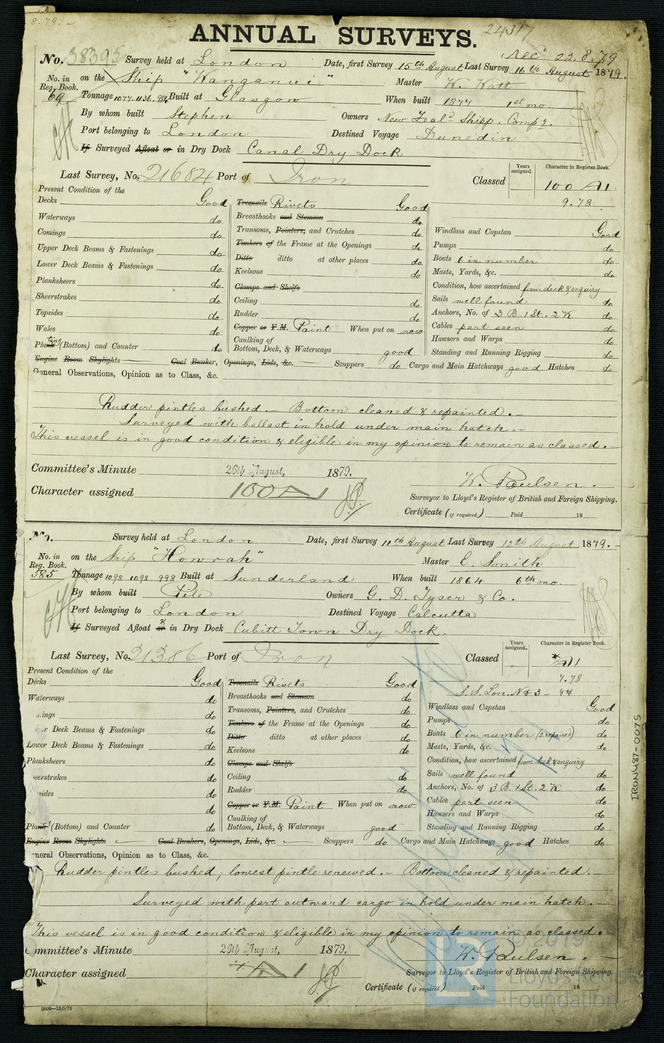 8.79.
24317
ANNUAL SURVEYS.
Rec 22.8.79
No. 38395 Survey held at London Date, first Survey 15th August Last Survey 16th August 1879.
No. in Reg. Book. on the Ship "Wanganui" Master W. Watt
69 Tonnage 1077.1136. Built at Glasgow When built 1877 1st mo.
By whom built Stephen Owners New Zeald Shipp. Compy.
Port belonging to London Destined Voyage Dunedin
If Surveyed Afloat or in Dry Dock Canal Dry Dock
Last Survey, No. 21684 Port of Iron Classed Years assigned. Character in Register Book. 100 A1
9.78
Present Condition of the
Decks Good Treenails Rivets Good
Waterways do Breasthooks and Stemson do
Comings do Transoms, Pointers, and Crutches do Windlass and Capstan Good
Upper Deck Beams & Fastenings do Timbers of the Frame at the Openings do Pumps do
Lower Deck Beams & Fastenings do Ditto ditto at other places do Boats 6 in number do
Planksheers do Keelsons do Masts, Yards, &c. do
Sheerstrakes do Clamps and Shelfs Condition, how ascertained from deck & enquiry
Topsides do Ceiling do Sails well found do
Wales do Rudder do Anchors, No. of 3 B. 1 St. 2 K do
Copper or Y.M. Paint When put on now Cables part seen do
Plating (Bottom) and Counter do Caulking of Bottom, Deck, & Waterways good Hawsers and Warps do
Standing and Running Rigging do
Engine Room Skylights Coal Bunker, Openings, Lids, &c. Scuppers do Cargo and Main Hatchways good Hatches do
General Observations, Opinion as to Class, &c.
Rudder pintles bushed. Bottom cleaned & repainted.
Surveyed with ballast in hold under main hatch.
This vessel is in good condition & eligible in my opinion to remain as classed.
Committee's Minute 26th August, 1879.
Character assigned 100 A1
W. Paulsen.
Surveyor to Lloyd's Register of British and Foreign Shipping.
Certificate (if required) Paid 18
No. Survey held at London Date, first Survey 11th August Last Survey 12th August 1879.
No. in Reg. Book. on the Ship "Howrah" Master E. Smith
385 Tonnage 1098 1098 998 Built at Sunderland When built 1864 6th mo.
By whom built Pile Owners G. D. Tyser & Co.
Port belonging to London Destined Voyage Calcutta
If Surveyed Afloat or in Dry Dock Cubitt Town Dry Dock.
Last Survey, No. 31386 Port of Iron Classed Years assigned. Character in Register Book. A1
7.78
Present Condition of the S.S. Lon. No 3 - 77
Decks Good Treenails Rivets Good
Waterways do Breasthooks and Stemson do Windlass and Capstan Good
ings do Transoms, Pointers, and Crutches do Pumps do
r Deck Beams & Fastenings do Timbers of the Frame at the Openings do Boats 6 in number do
Lower Deck Beams & Fastenings do Ditto ditto at other places do Masts, Yards, &c. do
Keelsons do
Planksheers do Clamps and Shelfs Condition, how ascertained from deck & enquiry
eerstrakes do Ceiling do Sails well found do
sides do Rudder do Anchors, No. of 3 B. 1 St. 2 K do
do Copper or Y.M. Paint When put on now Cables part seen do
Hawsers and Warps do
Plating (Bottom) and Counter do Caulking of Bottom, Deck, & Waterways good Standing and Running Rigging do
Engine Room Skylights Coal Bunkers, Openings, Lids, &c. Scuppers do Cargo and Main Hatchways good Hatches do
neral Observations, Opinion as to Class, &c.
Rudder pintles bushed, lowest pintle renewed. Bottom cleaned & repainted.
Surveyed with part outward cargo in hold under main hatch.
This vessel is in good condition & eligible in my opinion to remain as classed.
ommittee's Minute 26th August, 1879.
Character assigned A1
W. Paulsen.
Surveyor to Lloyd's Register of British and Foreign Shipping.
Certificate (if required) Paid 18
IRON487-0075
© 2019
Lloyd's Register
Foundation